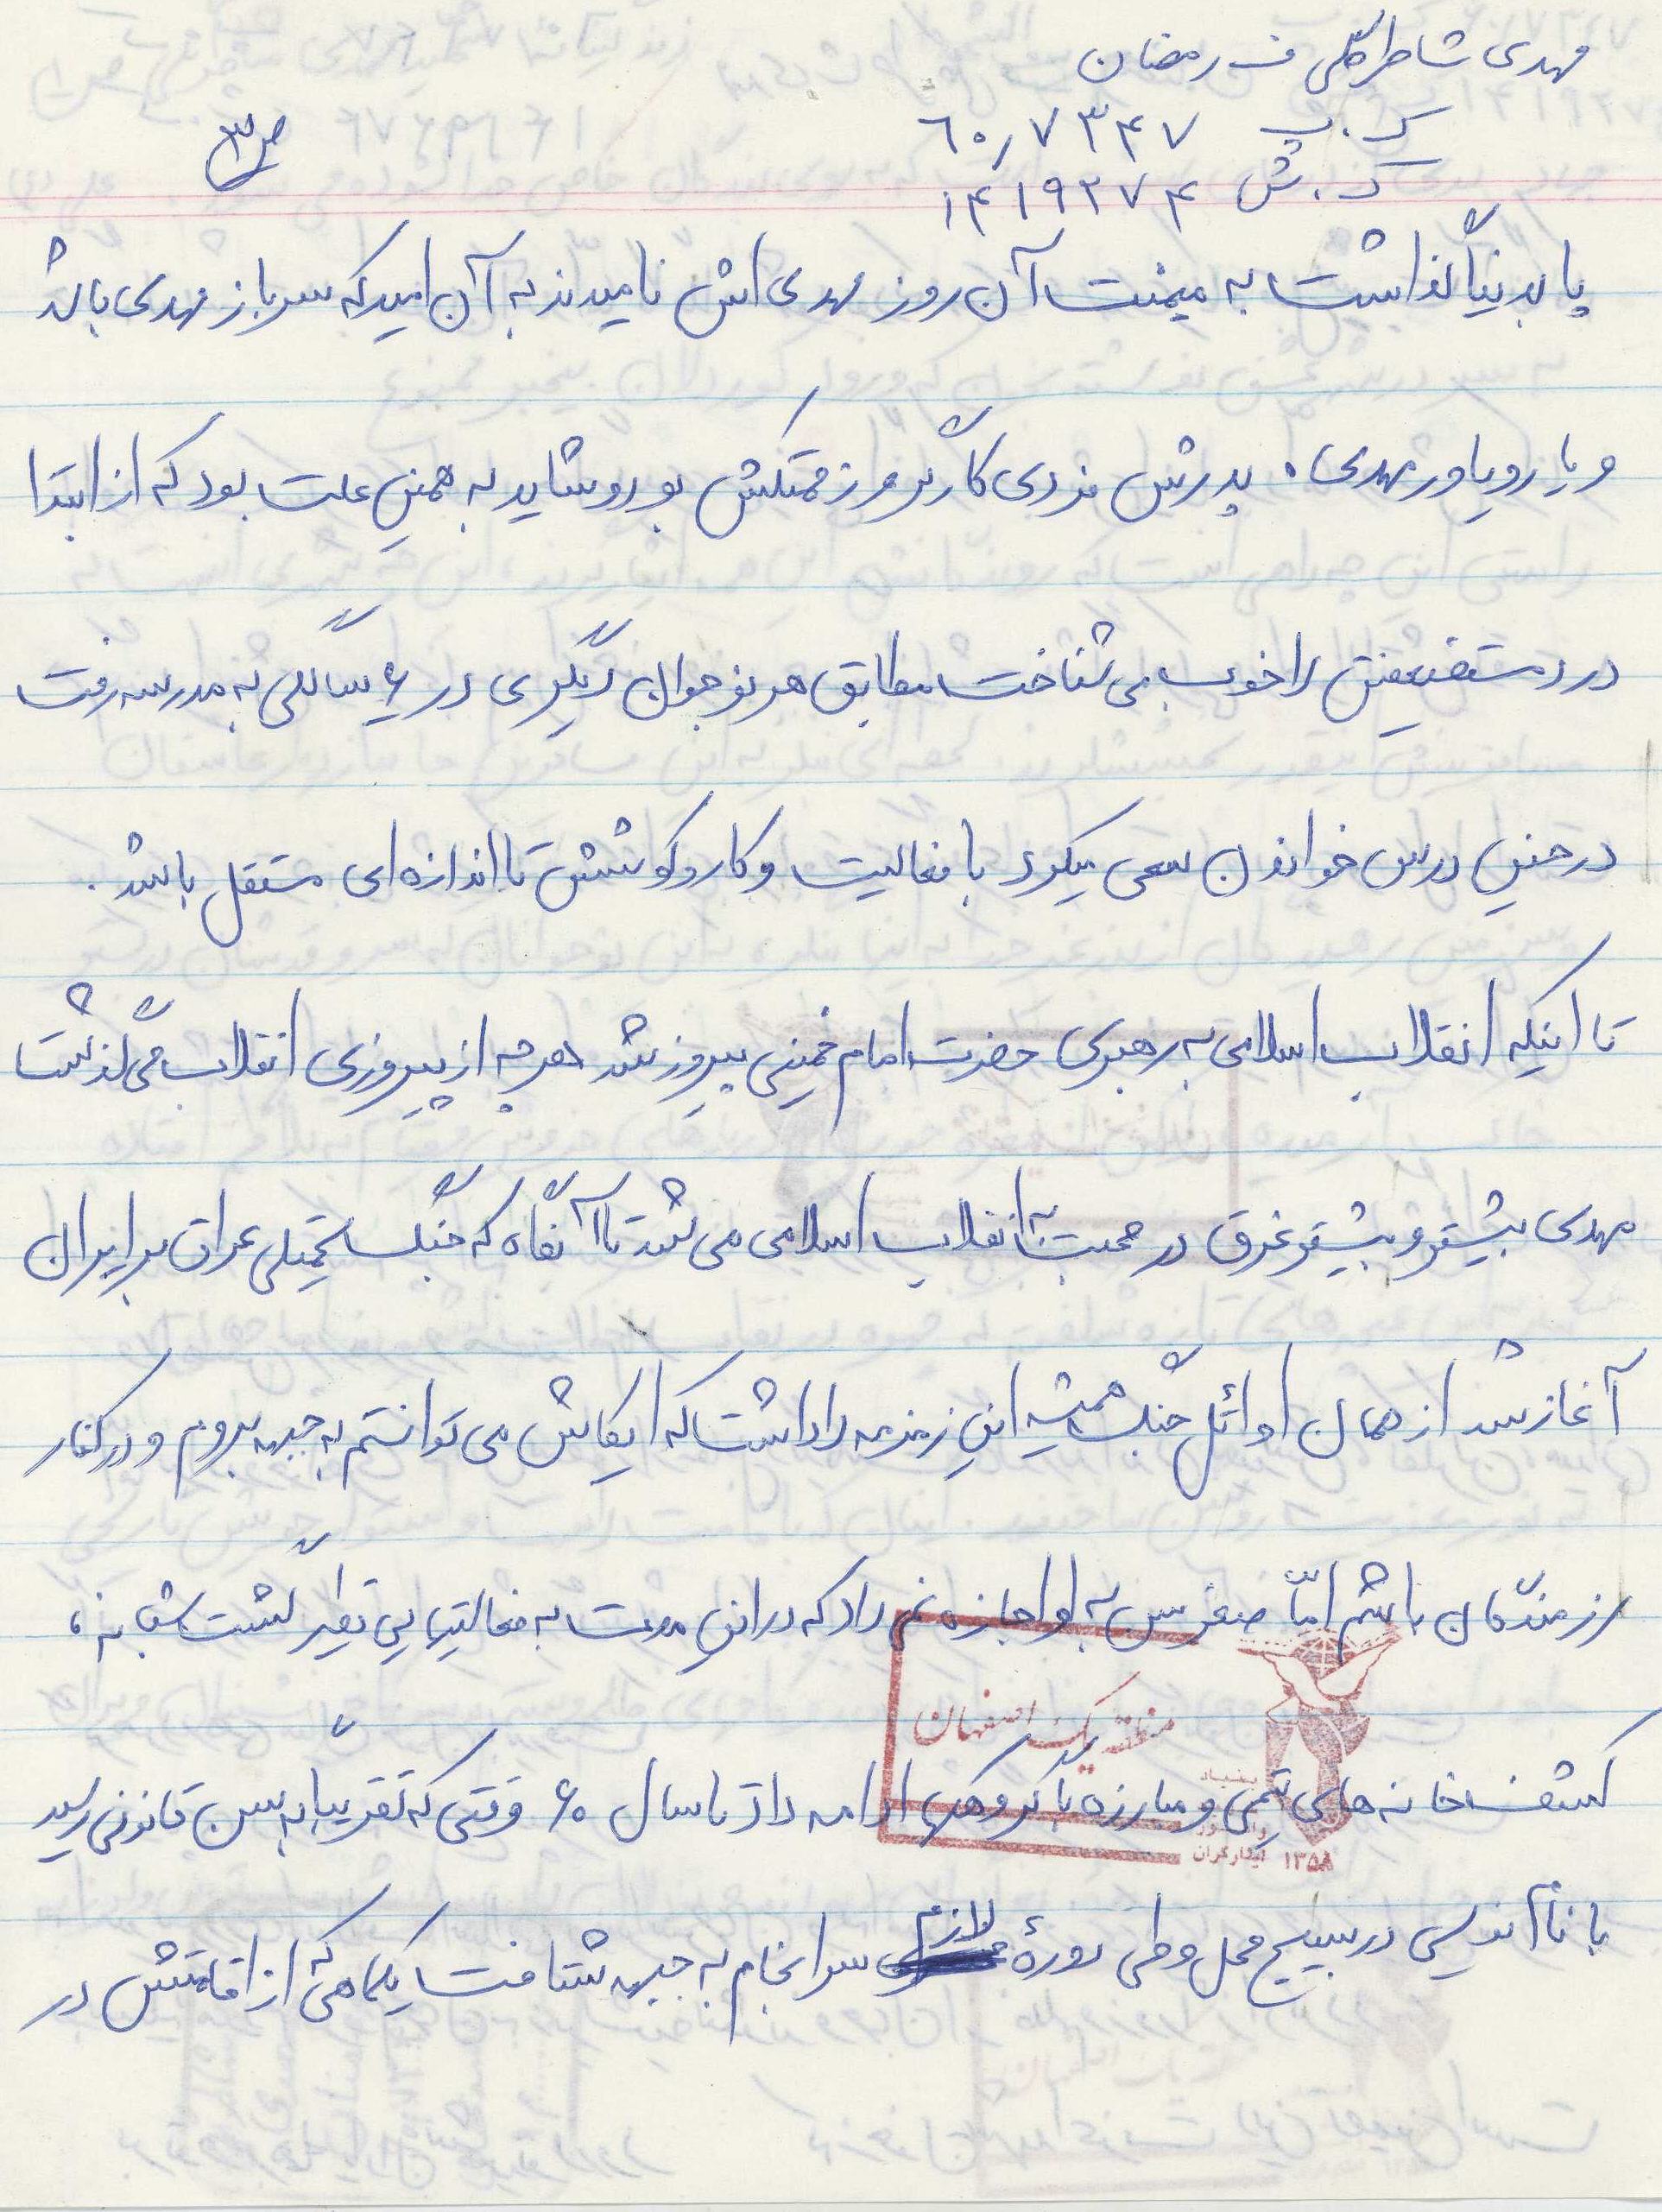 مهدی شاطرگلی ف رمضان
ک.پ ۶۰٫۷۳۴۷
ک.ش ۱۴۱۹۲۷۴
ص ۳
پا بدنیا گذاشت به میمنت آن روز مهدی اش نامیدند به آن امید که سرباز مهدی باشد
و یار و یاور مهدی. پدرش مردی کارگر و زحمتکش بود و شاید به همین علت بود که از ابتدا
درد مستضعفین را خوب می شناخت مطابق هر نوجوان دیگری در ۶ سالگی به مدرسه رفت
در حین درس خواندن سعی میکرد با فعالیت و کار و کوشش تا اندازه ای مستقل باشد.
تا اینکه انقلاب اسلامی به رهبری حضرت امام خمینی پیروز شد هر چه از پیروزی انقلاب می گذشت
مهدی بیشتر و بیشتر غرق در محبت به انقلاب اسلامی می شد تا آنگاه که جنگ تحمیلی عراق بر ایران
آغاز شد از همان اوائل جنگ همیشه این زمزمه را داشت که ایکاش می توانستم به جبهه بروم و در کنار
رزمندگان باشم امّا صغر سن به او اجازه نمی داد که در این مدت به فعالیتهایی نظیر گشت شبانه،
کشف خانه های تیمی و مبارزه با گروهکها ادامه داد تا سال ۶۰ وقتی که تقریباً به سن قانونی رسید
با نام نویسی در بسیج محل و طی دورهٔ لازم سرانجام به جبهه شتافت یکماهی که از اقامتش در
منطقه یک اصفهان
بنیاد
ایثارگران ۱۳۵۸